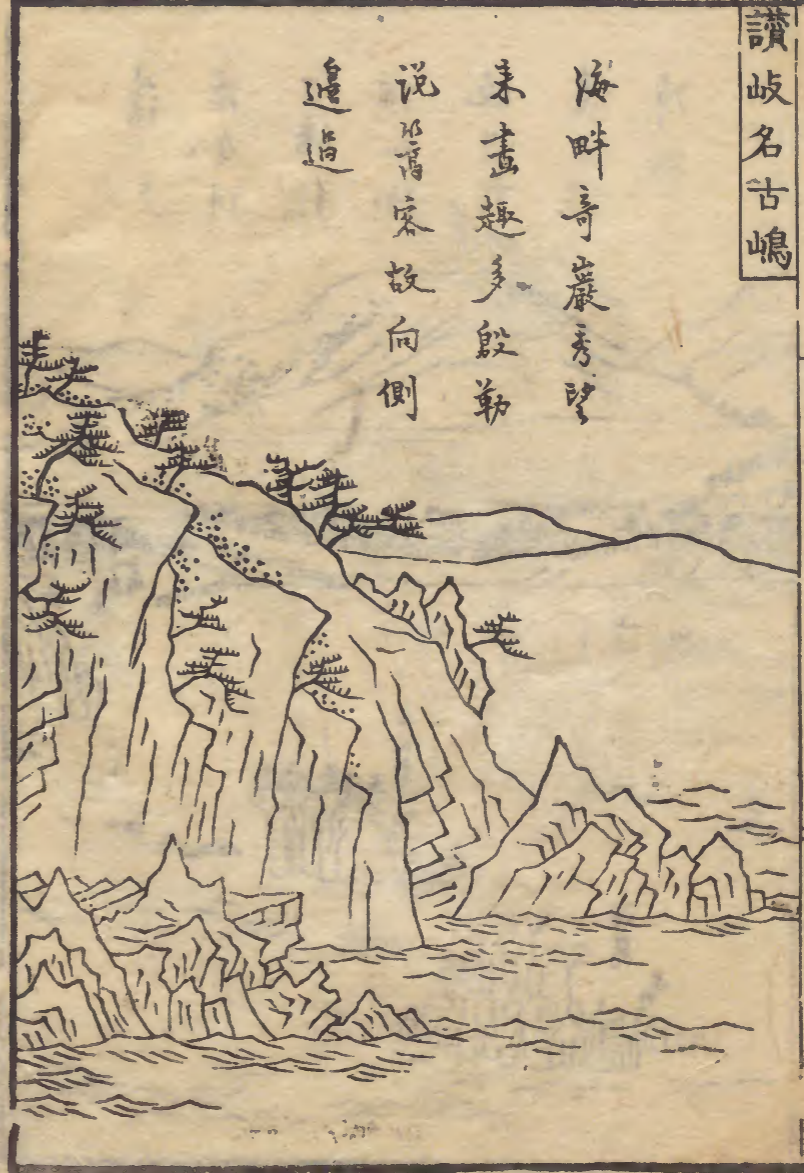 讚岐名古嶋
海畔奇巖秀望
来畫趣多殷勤
説篙客故向側
邊過